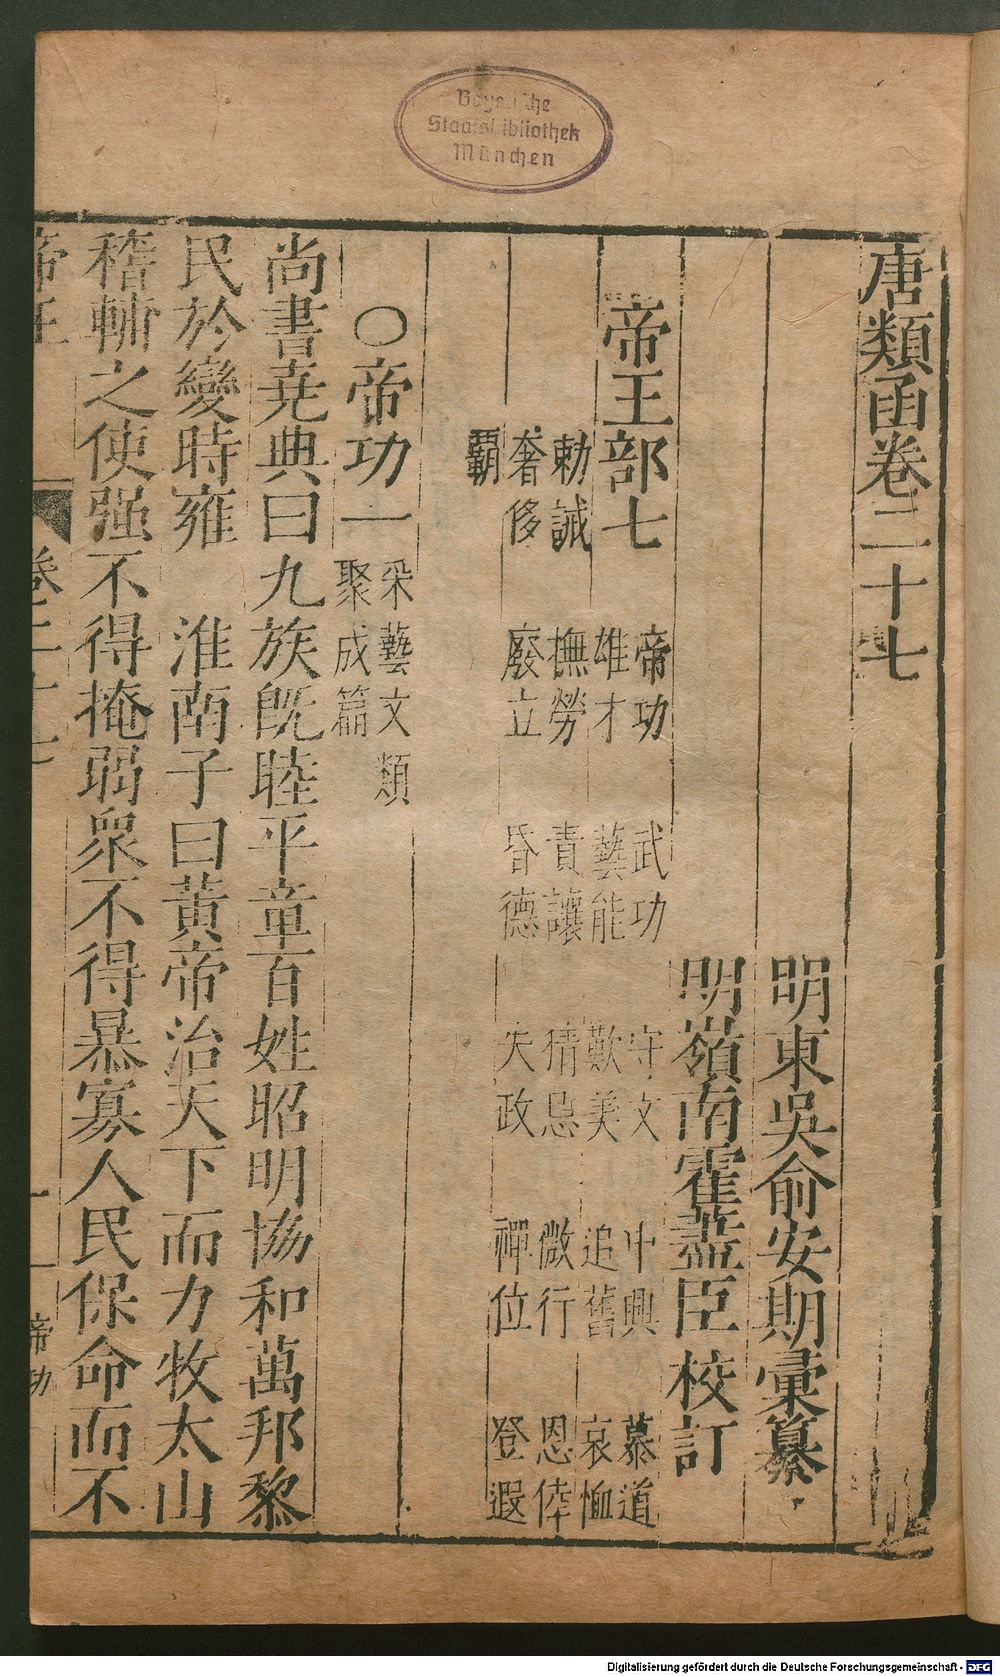 Bayerische
Staatsbibliothek
München
唐類函卷二十七
明東吳俞安期彙纂
明嶺南霍藎臣校訂
帝王部七
帝功 武功 守文 中興 慕道
雄才 藝能 歎美 追舊 哀恤
撫勞 責讓 猜忌 微行 恩倖
勅誡
奢侈 廢立 昏德 失政 禪位 登遐
霸
○帝功一
采藝文類
聚成篇
尚書堯典曰九族既睦平章百姓昭明協和萬邦黎
民於變時雍 淮南子曰黃帝治天下而力牧太山
稽輔之使强不得掩弱衆不得暴寡人民保命而不
帝王
卷二十七
一
帝功
Digitalisierung gefördert durch die Deutsche Forschungsgemeinschaft - DFG